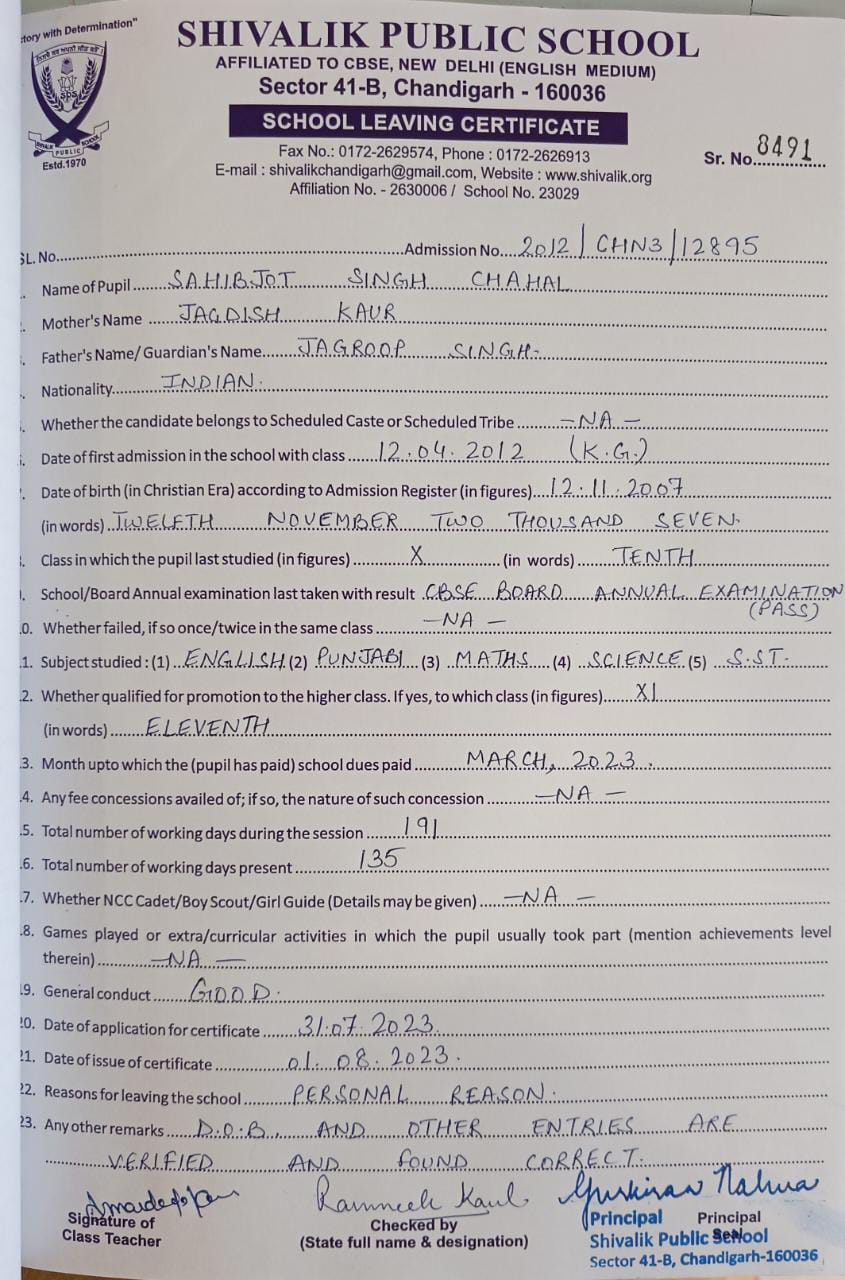 tory with Determination"
SHIVALIK PUBLIC SCHOOL
AFFILIATED TO CBSE, NEW DELHI (ENGLISH MEDIUM)
Sector 41-B, Chandigarh - 160036
SCHOOL LEAVING CERTIFICATE
Fax No.: 0172-2629574, Phone : 0172-2626913
E-mail : shivalikchandigarh@gmail.com, Website : www.shivalik.org
Affiliation No. - 2630006 / School No. 23029
SPS
SHIVALIK PUBLIC SCHOOL
Estd.1970
Sr. No. 8491
SL. No. Admission No. 2012/CHN3/12895
Name of Pupil SAHIBJOT SINGH CHAHAL
Mother's Name JAGDISH KAUR
Father's Name/ Guardian's Name JAGROOP SINGH-
Nationality INDIAN.
Whether the candidate belongs to Scheduled Caste or Scheduled Tribe -NA-
Date of first admission in the school with class 12.04.2012 (K.G.)
Date of birth (in Christian Era) according to Admission Register (in figures) 12.11.2007
(in words) TWELFTH NOVEMBER TWO THOUSAND SEVEN.
Class in which the pupil last studied (in figures) X (in words) TENTH
School/Board Annual examination last taken with result CBSE BOARD ANNUAL EXAMINATION
(PASS)
0. Whether failed, if so once/twice in the same class -NA-
1. Subject studied : (1) ENGLISH (2) PUNJABI (3) MATHS (4) SCIENCE (5) S.ST.
2. Whether qualified for promotion to the higher class. If yes, to which class (in figures) XI
(in words) ELEVENTH
3. Month upto which the (pupil has paid) school dues paid MARCH, 2023.
4. Any fee concessions availed of; if so, the nature of such concession -NA-
5. Total number of working days during the session 191
6. Total number of working days present 135
7. Whether NCC Cadet/Boy Scout/Girl Guide (Details may be given) -NA-
8. Games played or extra/curricular activities in which the pupil usually took part (mention achievements level
therein) -NA-
9. General conduct GOOD.
20. Date of application for certificate 31.07.2023
21. Date of issue of certificate 01.08.2023.
22. Reasons for leaving the school PERSONAL REASON.
23. Any other remarks D.O.B. AND OTHER ENTRIES ARE
VERIFIED AND FOUND CORRECT.
Ramneek Kaul Gurkiran Nahua
Signature of
Class Teacher
Checked by
(State full name & designation)
Principal Principal
Shivalik Public School
Sector 41-B, Chandigarh-160036